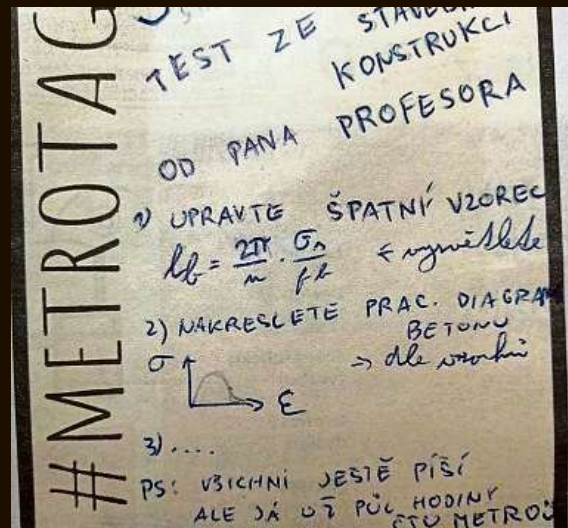 #METROTAG
TEST ZE STAVEB
KONSTRUKCÍ
OD PANA PROFESORA
1) UPRAVTE ŠPATNÍ VZOREC
lb = 2π/n · σn/fb ← vysvětlete
2) NAKRESLETE PRAC. DIAGRAM
BETONU
σ → dle vzorků
ε
3) ....
PS: VŠICHNI JEŠTĚ PÍŠÍ
ALE JÁ UŽ PŮL HODINY
ČTU METRO